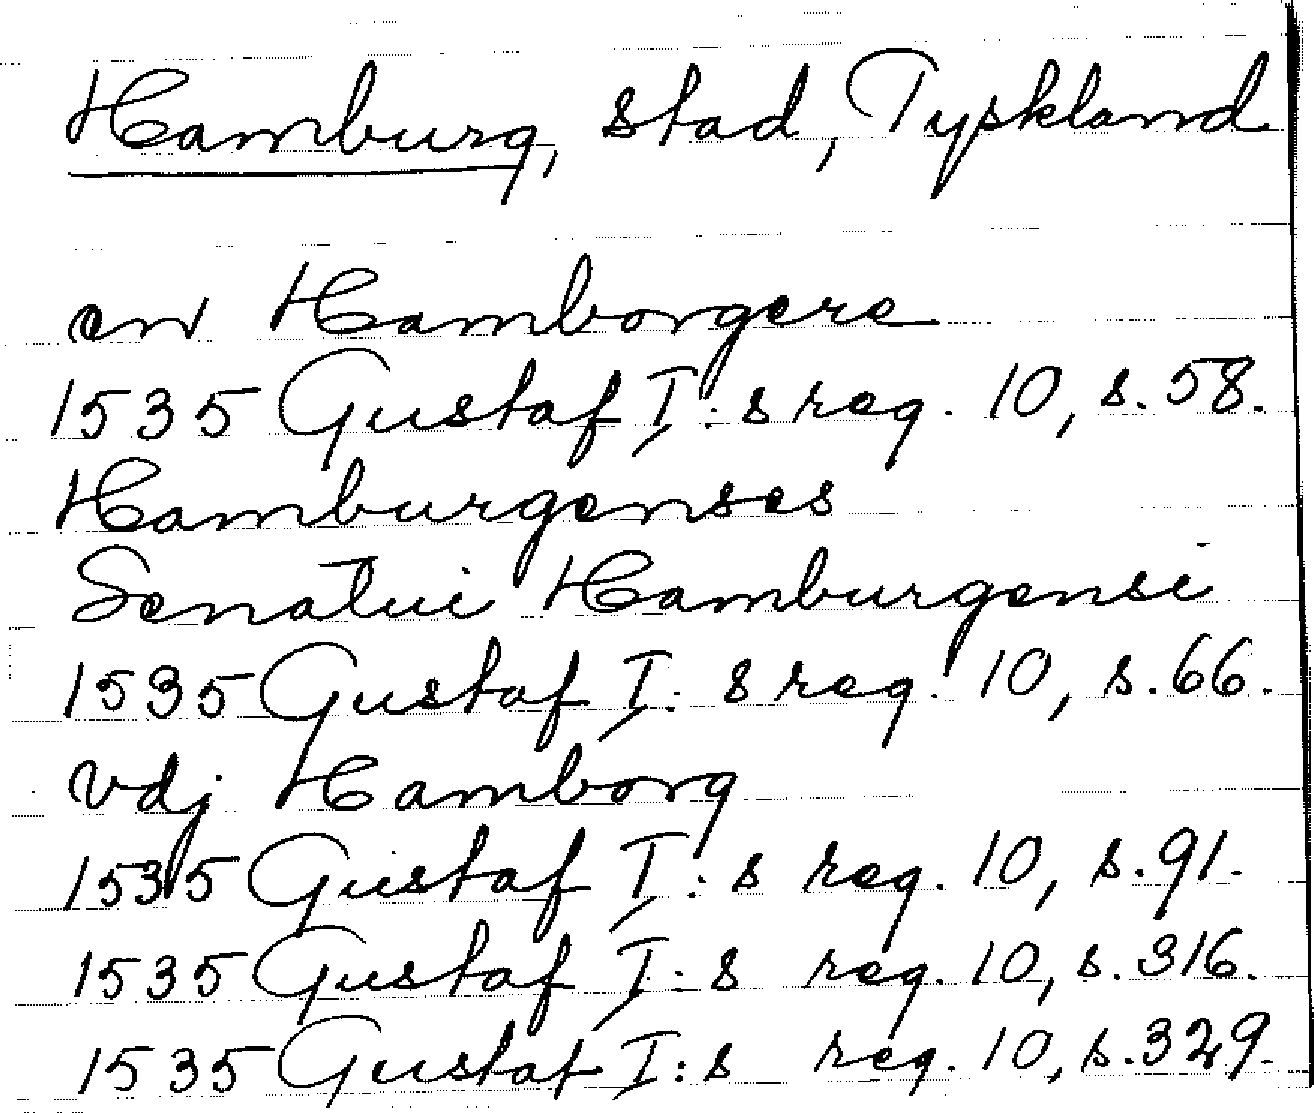 Hamburg, stad, Tyskland
en Hamborgere
1535 Gustaf I:s reg. 10, s. 58.
Hamburgenses
Senatui Hamburgensi
1535 Gustaf I:s reg. 10, s. 66.
vdj Hamborg
1535 Gustaf I:s reg. 10, s. 91.
1535 Gustaf I:s reg. 10, s. 316.
1535 Gustaf I:s reg. 10, s. 329.